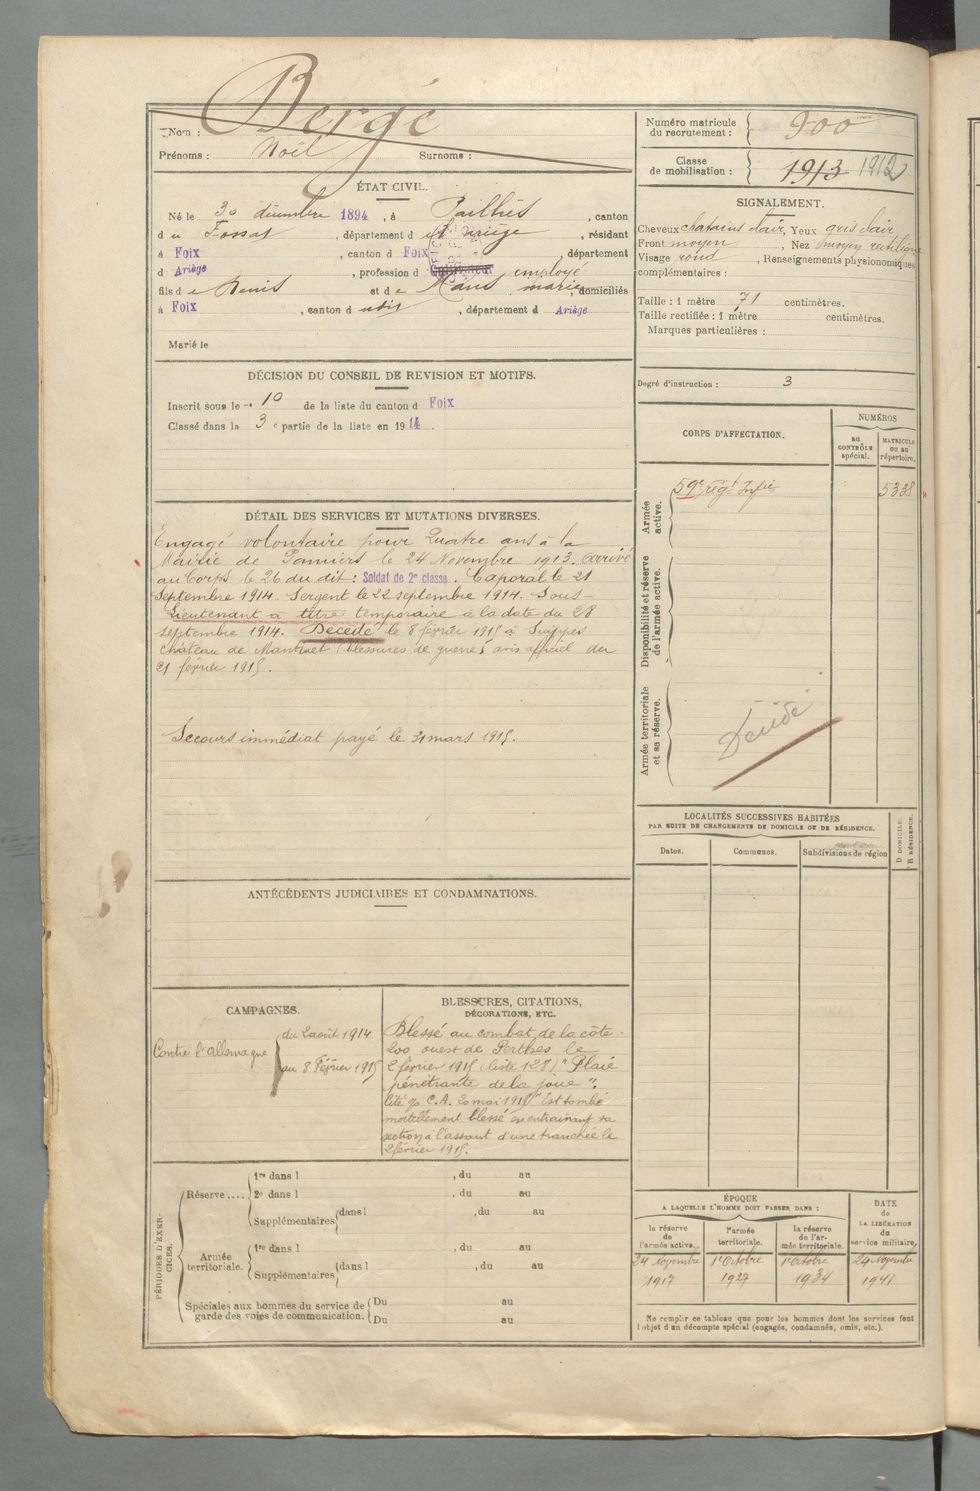 Nom : Bergé
Prénoms : Noël Surnoms :
Numéro matricule du recrutement : 900
Classe de mobilisation : 1913 1912
ÉTAT CIVIL.
Né le 30 décembre 1894, à Pailhès, canton
du Fossat, département de l'Ariège, résidant
à Foix, canton d Foix, département
d Ariège, profession d Cultivateur employé
fils de Denis et de marie, domiciliés
à Foix, canton d , département d Ariège
Marié le
SIGNALEMENT.
Cheveux chatains clair, Yeux gris clair
Front moyen, Nez moyen rectiligne
Visage rond, Renseignements physionomiques
complémentaires :
Taille : 1 mètre 71 centimètres.
Taille rectifiée : 1 mètre centimètres.
Marques particulières :
Degré d'instruction : 3
DÉCISION DU CONSEIL DE REVISION ET MOTIFS.
Inscrit sous le n° 10 de la liste du canton d Foix
Classé dans la 3e partie de la liste en 1914.
CORPS D'AFFECTATION.
NUMÉROS
au CONTRÔLE spécial.
MATRICULE OU AU répertoire.
Armée active.
59e régt Infie 5338
Disponibilité et réserve de l'armée active.
Armée territoriale et sa réserve.
Décédé
DÉTAIL DES SERVICES ET MUTATIONS DIVERSES.
Engagé volontaire pour Quatre ans à la
Mairie de Pamiers le 24 Novembre 1913. Arrivé
au Corps le 26 du dit : Soldat de 2e classe. Caporal le 21
Septembre 1914. Sergent le 22 septembre 1914. Sous-
Lieutenant à titre temporaire à la date du 28
septembre 1914. Décédé le 8 février 1915 à Suippes
château de (blessures de guerre) avis officiel du
21 février 1915.
Secours immédiat payé le 31 mars 1915.
LOCALITÉS SUCCESSIVES HABITÉES
PAR SUITE DE CHANGEMENTS DE DOMICILE OU DE RÉSIDENCE.
Dates. Communes. Subdivisions de région
D DOMICILE.
R RÉSIDENCE.
ANTÉCÉDENTS JUDICIAIRES ET CONDAMNATIONS.
CAMPAGNES.
Contre l'allemagne
du 2 août 1914
au 8 Février 1915
BLESSURES, CITATIONS,
DÉCORATIONS, ETC.
Blessé au combat de la côte
200 ouest de Perthes le
2 février 1915 (liste 128) "Plaie
pénétrante de la joue".
Cité C.A. 20 mai 1915 "Est tombé
mortellement blessé en entrainant sa
section à l'assaut d'une tranchée le
2 février 1915.
PÉRIODES D'EXERCICES.
Réserve....
1re dans l , du au
2e dans l , du au
Supplémentaires dans l , du au
Armée territoriale.
1re dans l , du au
Supplémentaires dans l , du au
Spéciales aux hommes du service de
garde des voies de communication.
Du au
Du au
ÉPOQUE
A LAQUELLE L'HOMME DOIT PASSER DANS :
la réserve de l'armée active.
l'armée territoriale.
la réserve de l'armée territoriale.
DATE de LA LIBÉRATION du service militaire.
24 Novembre 1917
1er Octobre 1927
1er Octobre 1934
24 Novembre 1941
Ne remplir ce tableau que pour les hommes dont les services font
l'objet d'un décompte spécial (engagés, condamnés, omis, etc.).